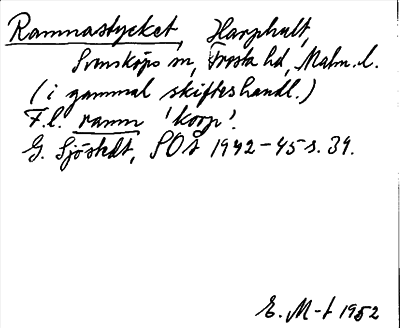 Ramnastycket, Harphult,
Svensköps sn, Frosta hd, Malm. l.
(i gammal skifteshandl.)
F.l. ramn 'korp'.
G. Sjöstedt, SOÅ 1942-45 s. 39.
E. M-t 1952